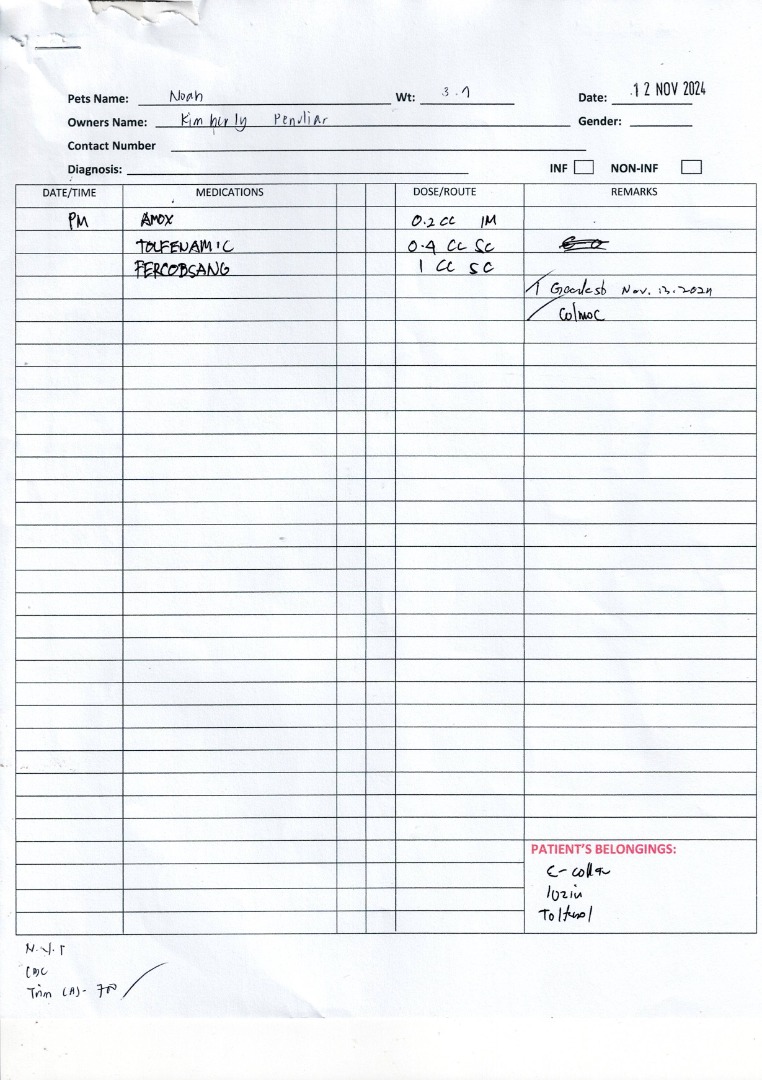 Pets Name: Noah Wt: 3.7 Date: 12 NOV 2024
Owners Name: Kimberly Gender:
Contact Number
Diagnosis: INF NON-INF
DATE/TIME MEDICATIONS DOSE/ROUTE REMARKS
PM AMOX 0.2 CC IM
TOLFENAMIC 0.4 CC SC
FERCOBSANG 1 CC SC
Nov. 13. 2024
PATIENT'S BELONGINGS:
E-collar
CBC
Trim